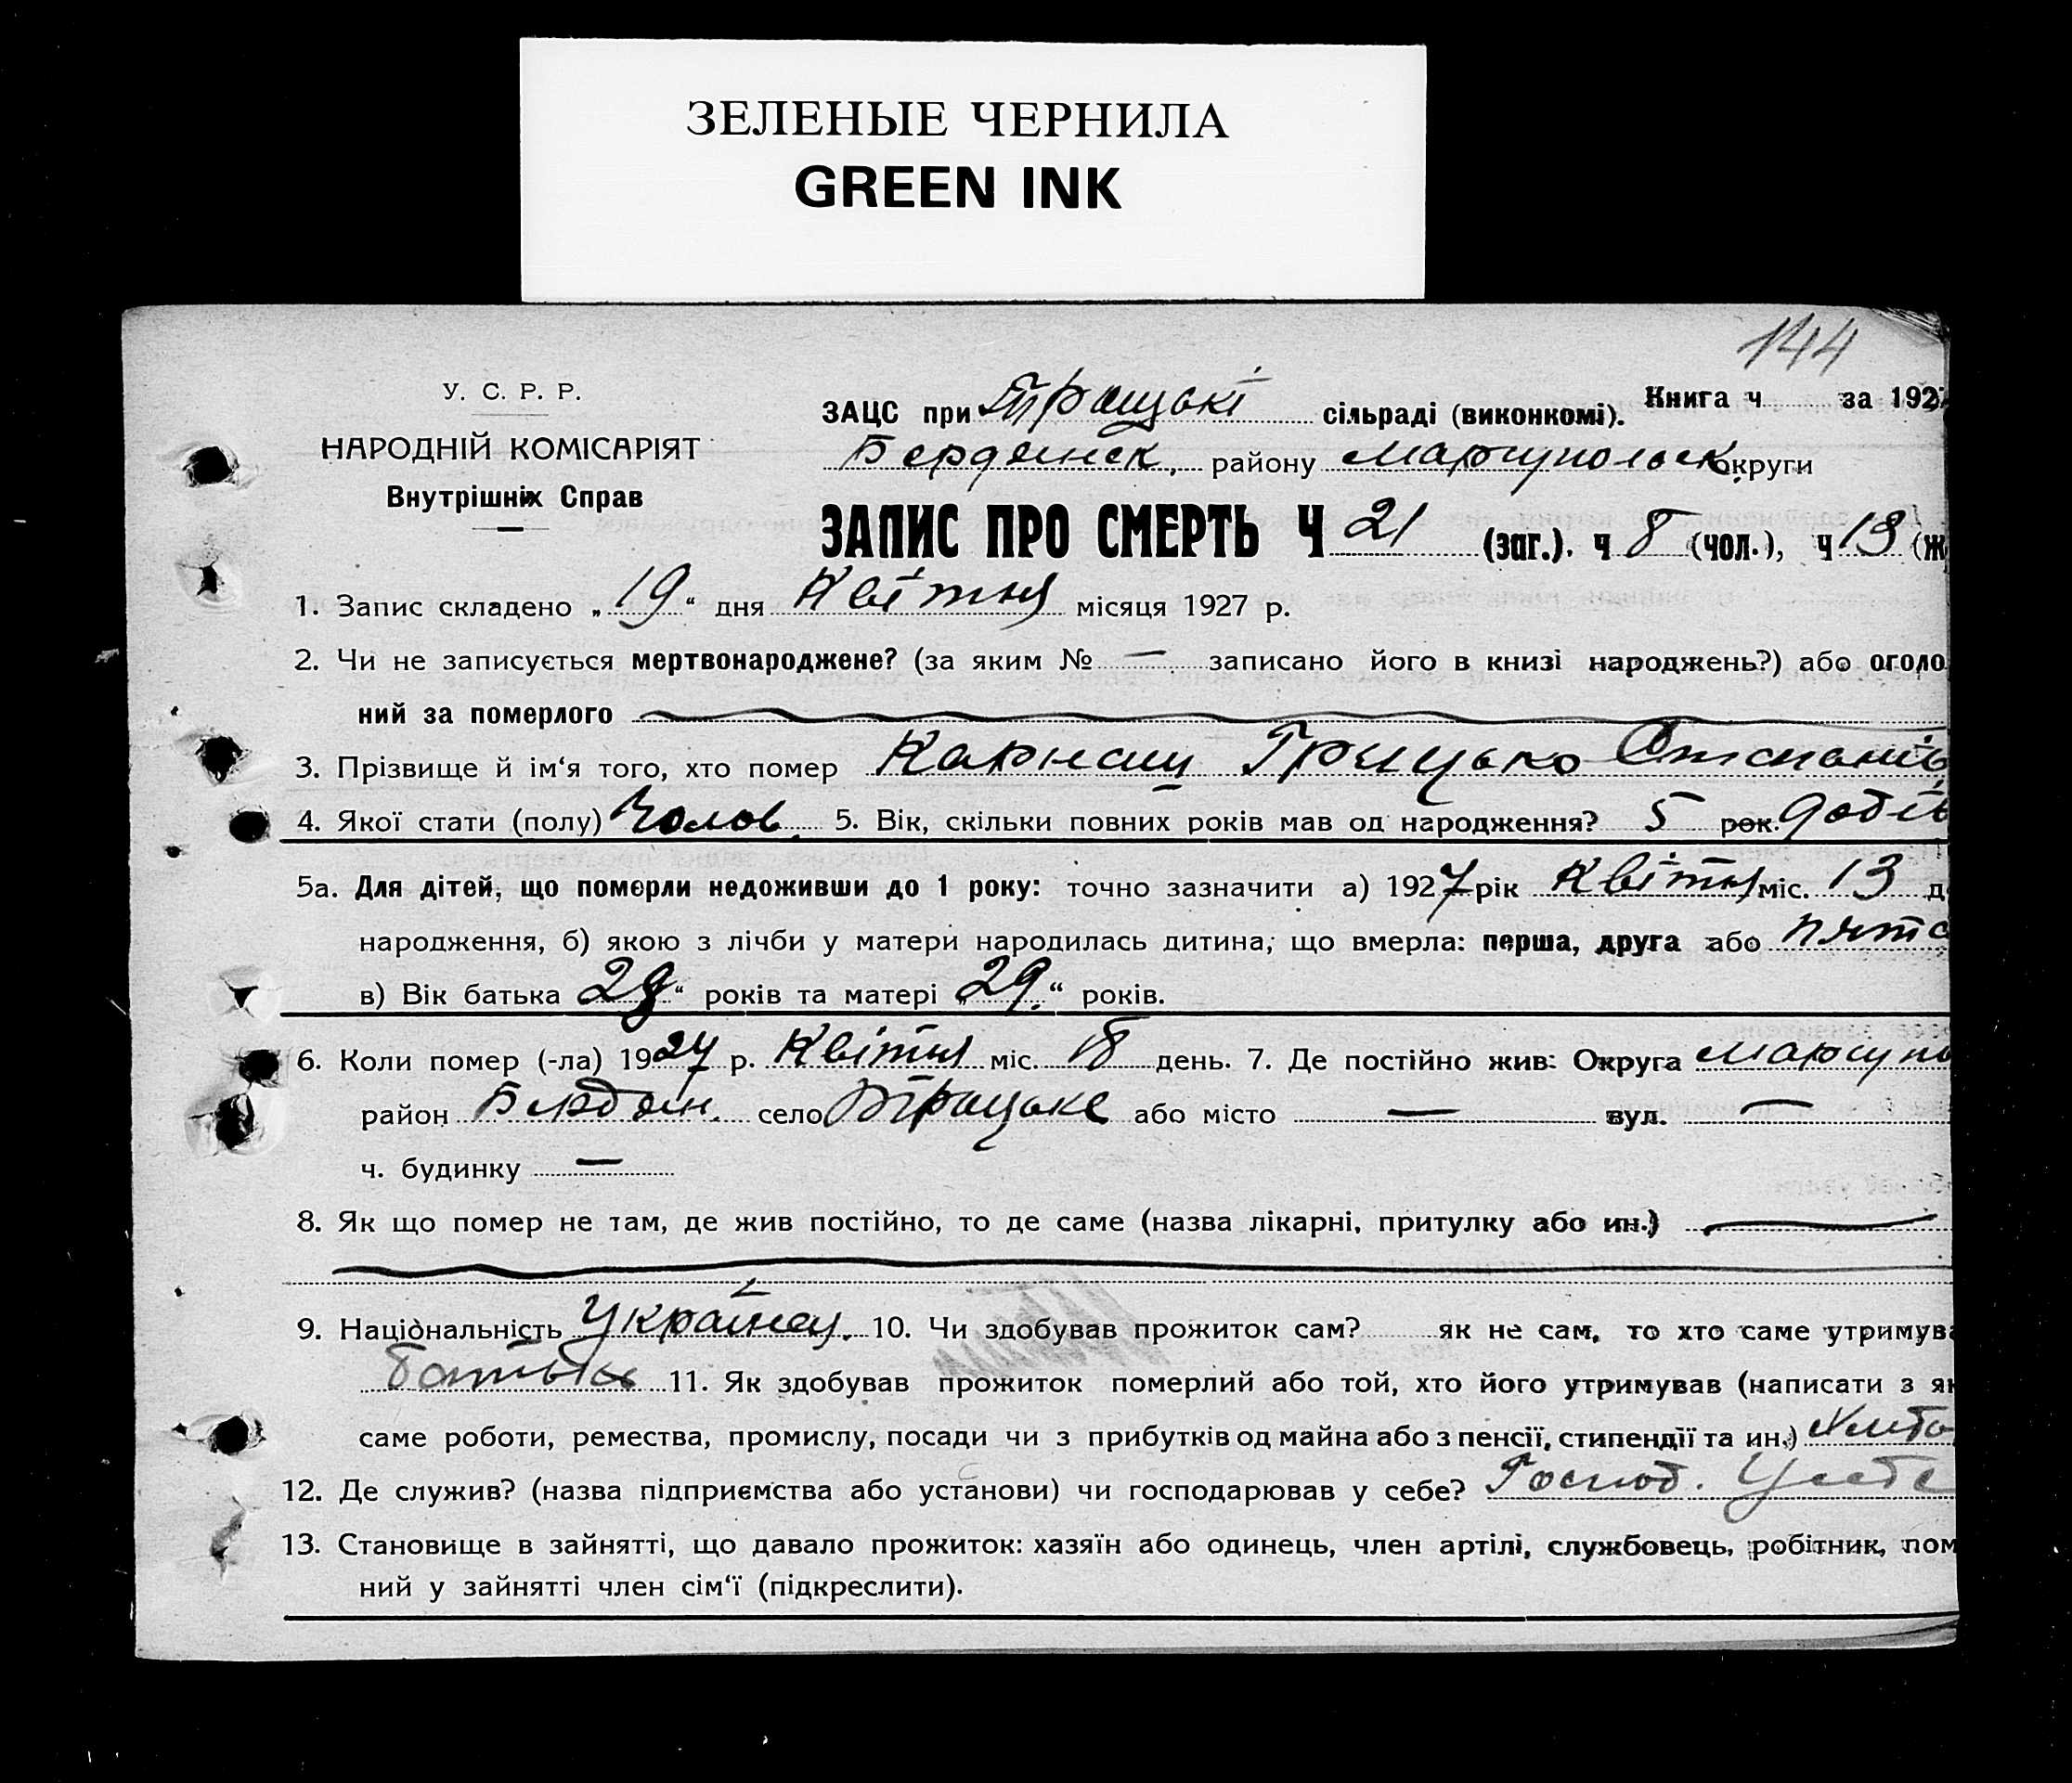 ЗЕЛЕНЫЕ ЧЕРНИЛА
GREEN INK
144
У. С. Р. Р.
НАРОДНІЙ КОМІСАРІЯТ
Внутрішніх Справ
ЗАЦС при сільраді (виконкомі). Книга ч за 192
Бердянск, району Маріупольск округи
ЗАПИС ПРО СМЕРТЬ Ч 21 (заг.). ч 8 (чол.), ч 13 (ж
1. Запис складено „19“ дня Квітня місяця 1927 р.
2. Чи не записується мертвонароджене? (за яким № — записано його в книзі народжень?) або оголо
ний за померлого
3. Прізвище й ім‘я того, хто помер Карнаш Грицько
4. Якої стати (полу) Чолов. 5. Вік, скільки повних років мав од народження? 5 рок. добів
5а. Для дітей, що померли недоживши до 1 року: точно зазначити а) 1927 рік Квітня міс. 13 д
народження, б) якою з лічби у матери народилась дитина, що вмерла: перша, друга або пята
в) Вік батька 29“ років та матері „29.“ років.
6. Коли помер (-ла) 1927 р. Квітня міс. 18 день. 7. Де постійно жив: Округа Маріупо
район Бердян. село або місто — вул. —
ч. будинку —
8. Як що помер не там, де жив постійно, то де саме (назва лікарні, притулку або ин.) —
9. Національність Україн. 10. Чи здобував прожиток сам? як не сам, то хто саме утримува
батько 11. Як здобував прожиток померлий або той, хто його утримував (написати з як
саме роботи, ремества, промислу, посади чи з прибутків од майна або з пенсії, стипендії та ин.) Хлібо
12. Де служив? (назва підприємства або установи) чи господарював у себе? Господ. У себе
13. Становище в зайнятті, що давало прожиток: хазяїн або одинець, член артілі, службовець, робітник, пом
ний у зайнятті член сім‘ї (підкреслити).